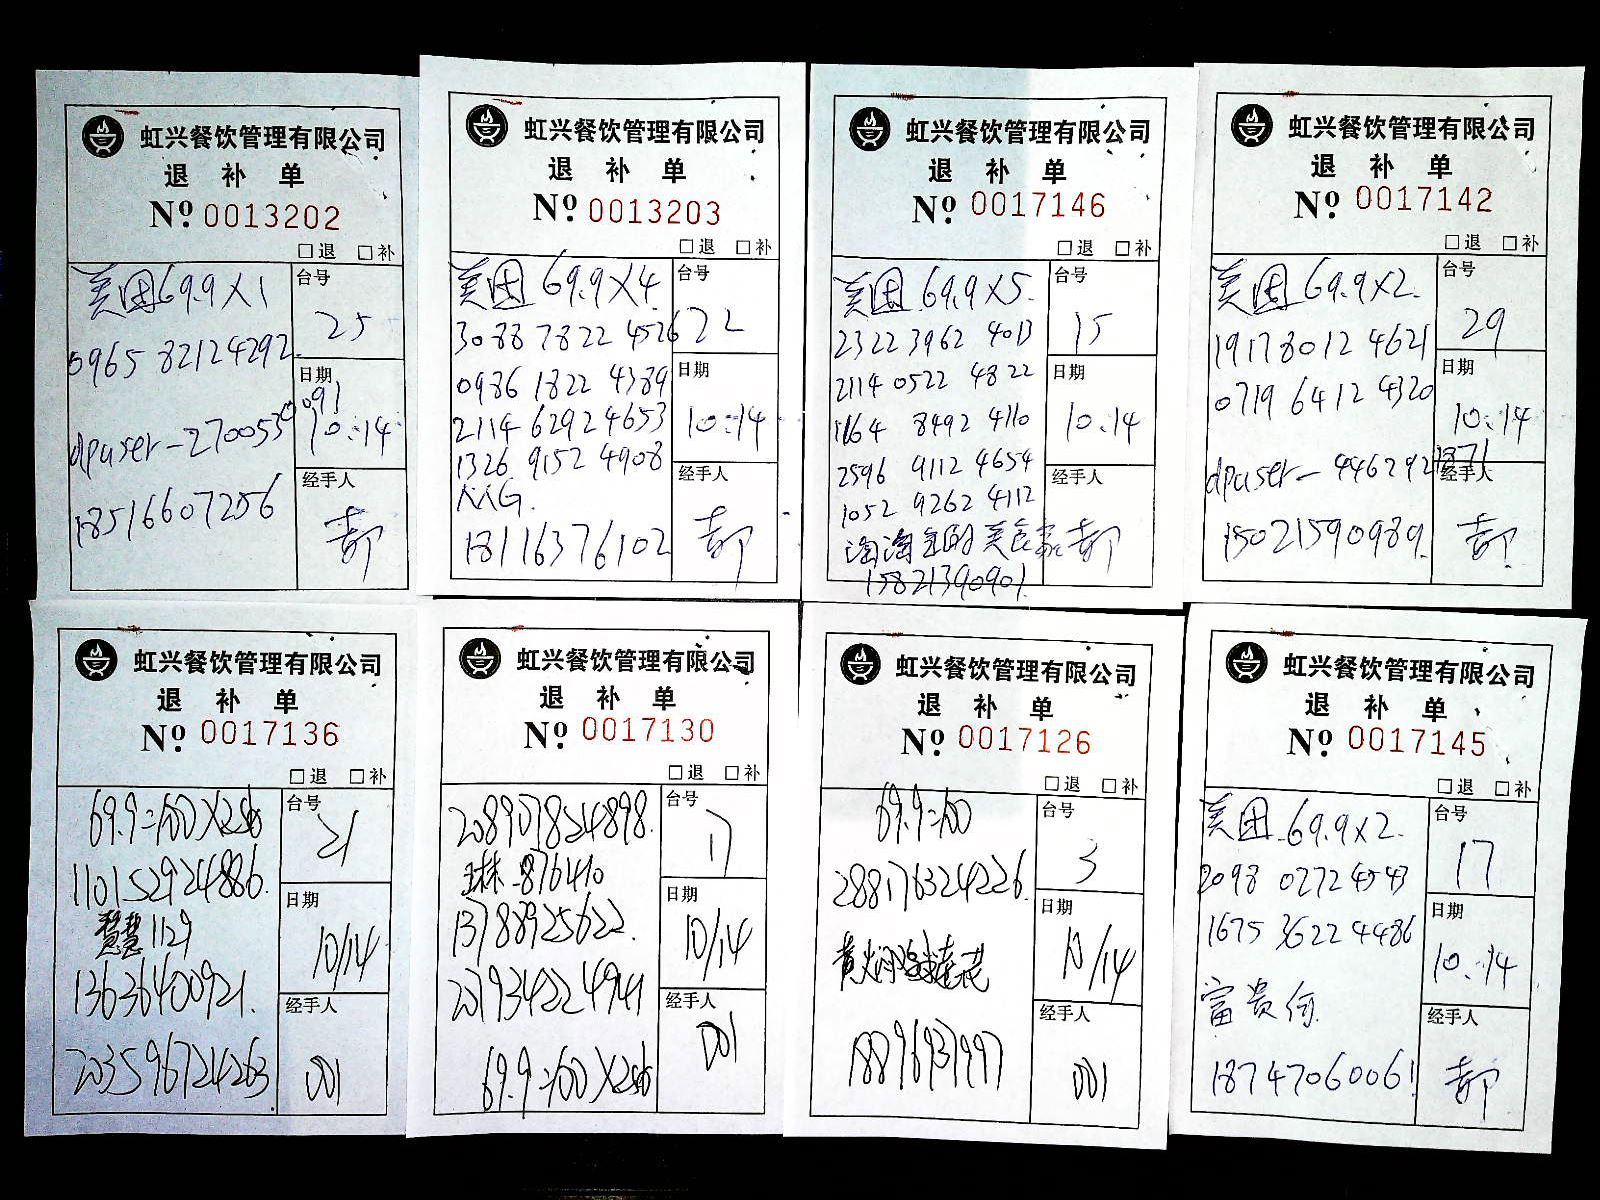 虹兴餐饮管理有限公司
退 补 单
Nº 0013202
□退 □补
美团69.9×1
0965 82124292
dpuser-2700530091
18516607256
台号
25
日期
10.14
经手人
虹兴餐饮管理有限公司
退 补 单
Nº 0013203
□退 □补
美团 69.9×4
3088 7822 4526
0986 1822 4389
2114 6292 4653
1326 9152 4908
18116376102
台号
22
日期
10.14
经手人
虹兴餐饮管理有限公司
退 补 单
Nº 0017146
□退 □补
美团 69.9×5
2322 3962 4013
2114 0522 4822
1164 8492 4110
2596 9112 4654
1052 9262 4112
15821390901
台号
15
日期
10.14
经手人
虹兴餐饮管理有限公司
退 补 单
Nº 0017142
□退 □补
美团 69.9×2
1917 8012 4621
0719 6412 4320
dpuser-4462921871
15021590989
台号
29
日期
10.14
经手人
虹兴餐饮管理有限公司
退 补 单
Nº 0017136
□退 □补
69.9=100×2
110152924886
慧慧1129
13636400921
203596724263
台号
21
日期
10/14
经手人
001
虹兴餐饮管理有限公司
退 补 单
Nº 0017130
□退 □补
208907824898
13788925622
207934224941
69.9=100×2
台号
17
日期
10/14
经手人
001
虹兴餐饮管理有限公司
退 补 单
Nº 0017126
□退 □补
69.9=100
288176324226
18896931997
台号
3
日期
10/14
经手人
001
虹兴餐饮管理有限公司
退 补 单
Nº 0017145
□退 □补
美团 69.9×2
2098 0272 4543
1675 3622 4486
富贵何
18747060061
台号
17
日期
10.14
经手人